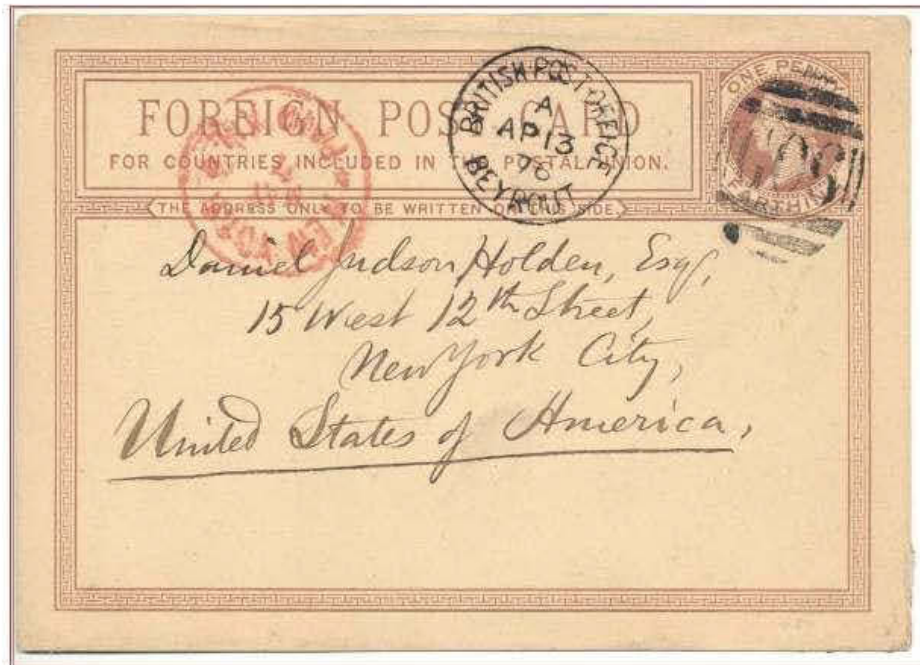 FOREIGN POST CARD
FOR COUNTRIES INCLUDED IN THE POSTAL UNION.
THE ADDRESS ONLY TO BE WRITTEN ON THIS SIDE
BRITISH POST OFFICE
A
AP 13
76
BEYROUT
ONE PENNY
FARTHING
NEW YORK
Daniel Judson Holden, Esq,
15 West 12th Street,
New York City,
United States of America,